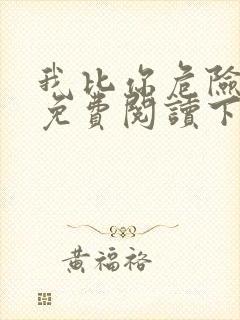 我比你危險
免費閱讀下
黃福裕